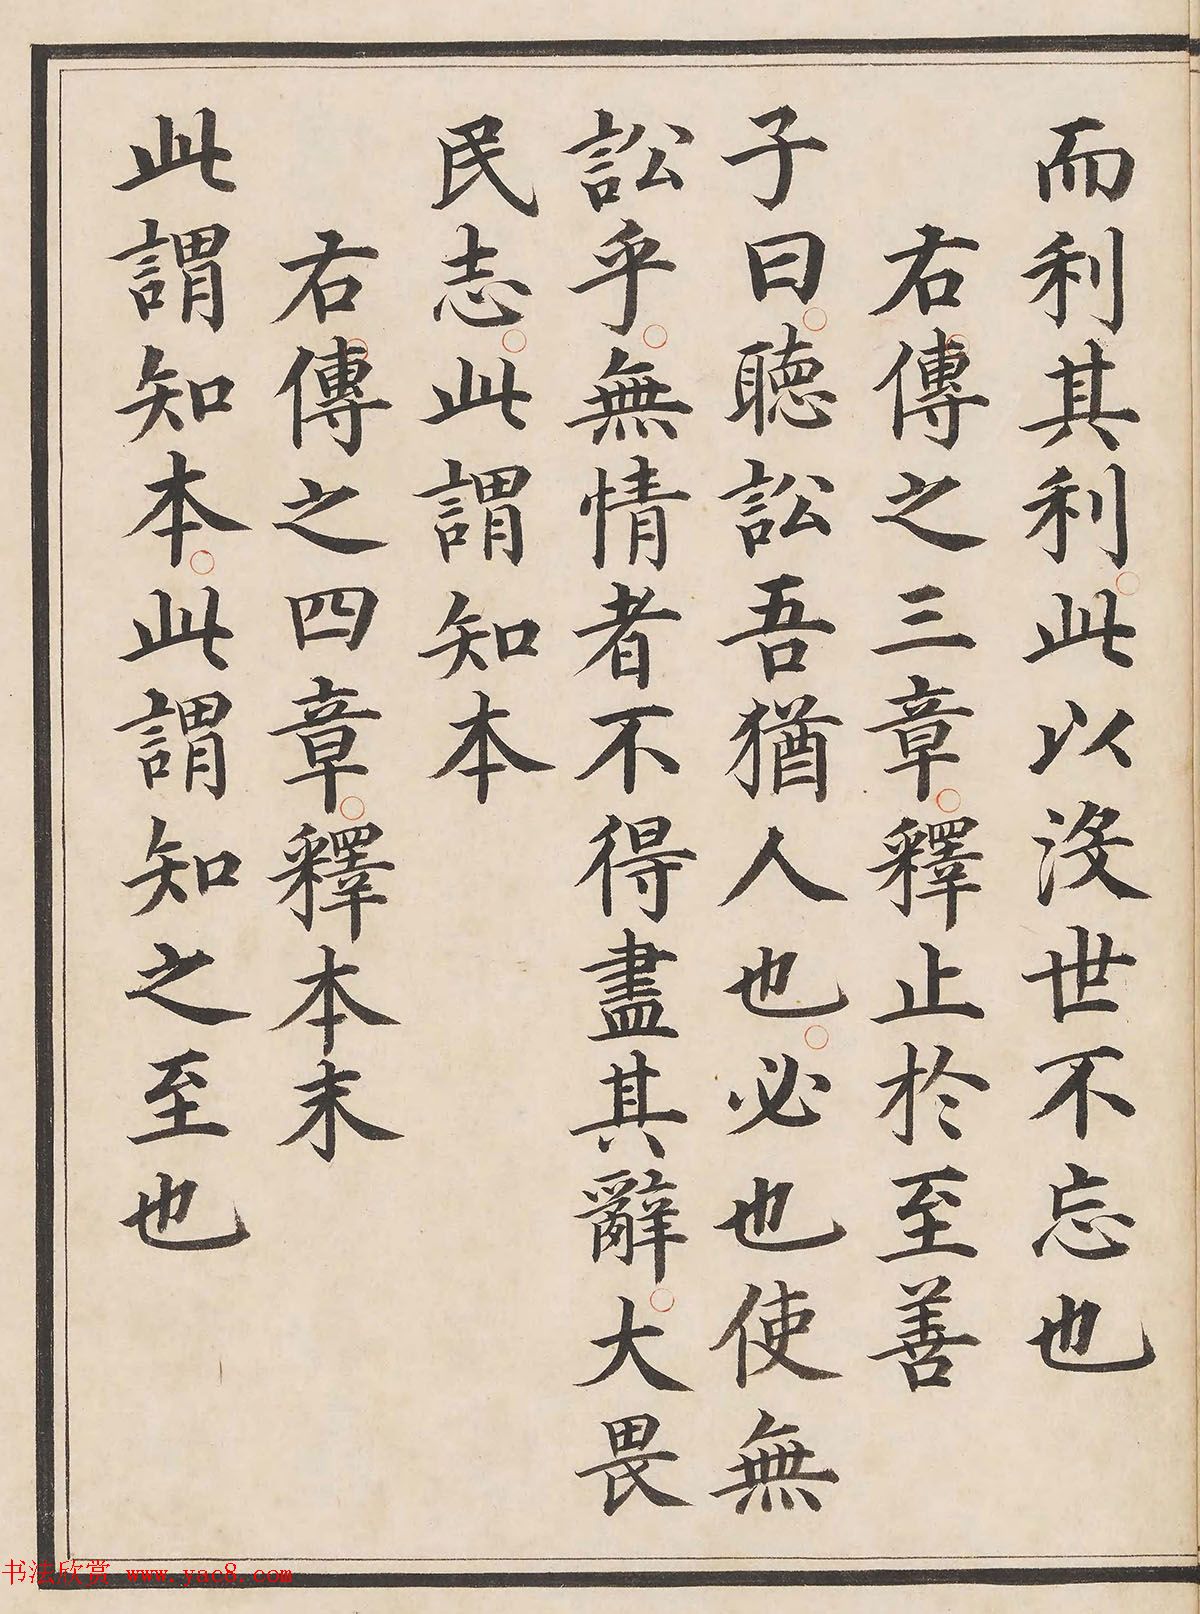 而利其利此以没世不忘也
右傳之三章釋止於至善
子曰聽訟吾猶人也必也使無
訟乎無情者不得盡其辭大畏
民志此謂知本
右傳之四章釋本末
此謂知本此謂知之至也
书法欣赏 www.yac8.com